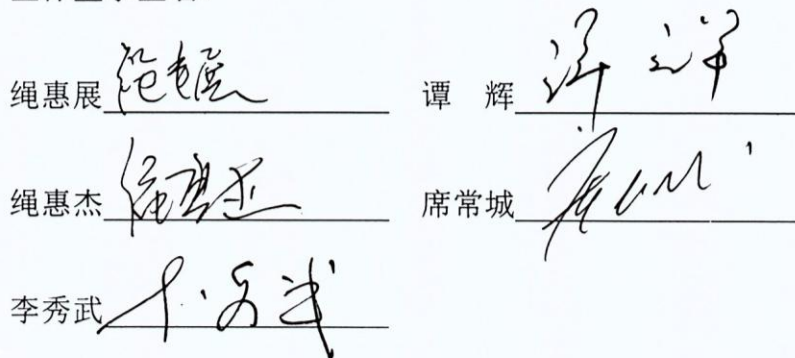 绳惠展 绳惠展 谭 辉 谭辉
绳惠杰 绳惠杰 席常城
李秀武 李秀武